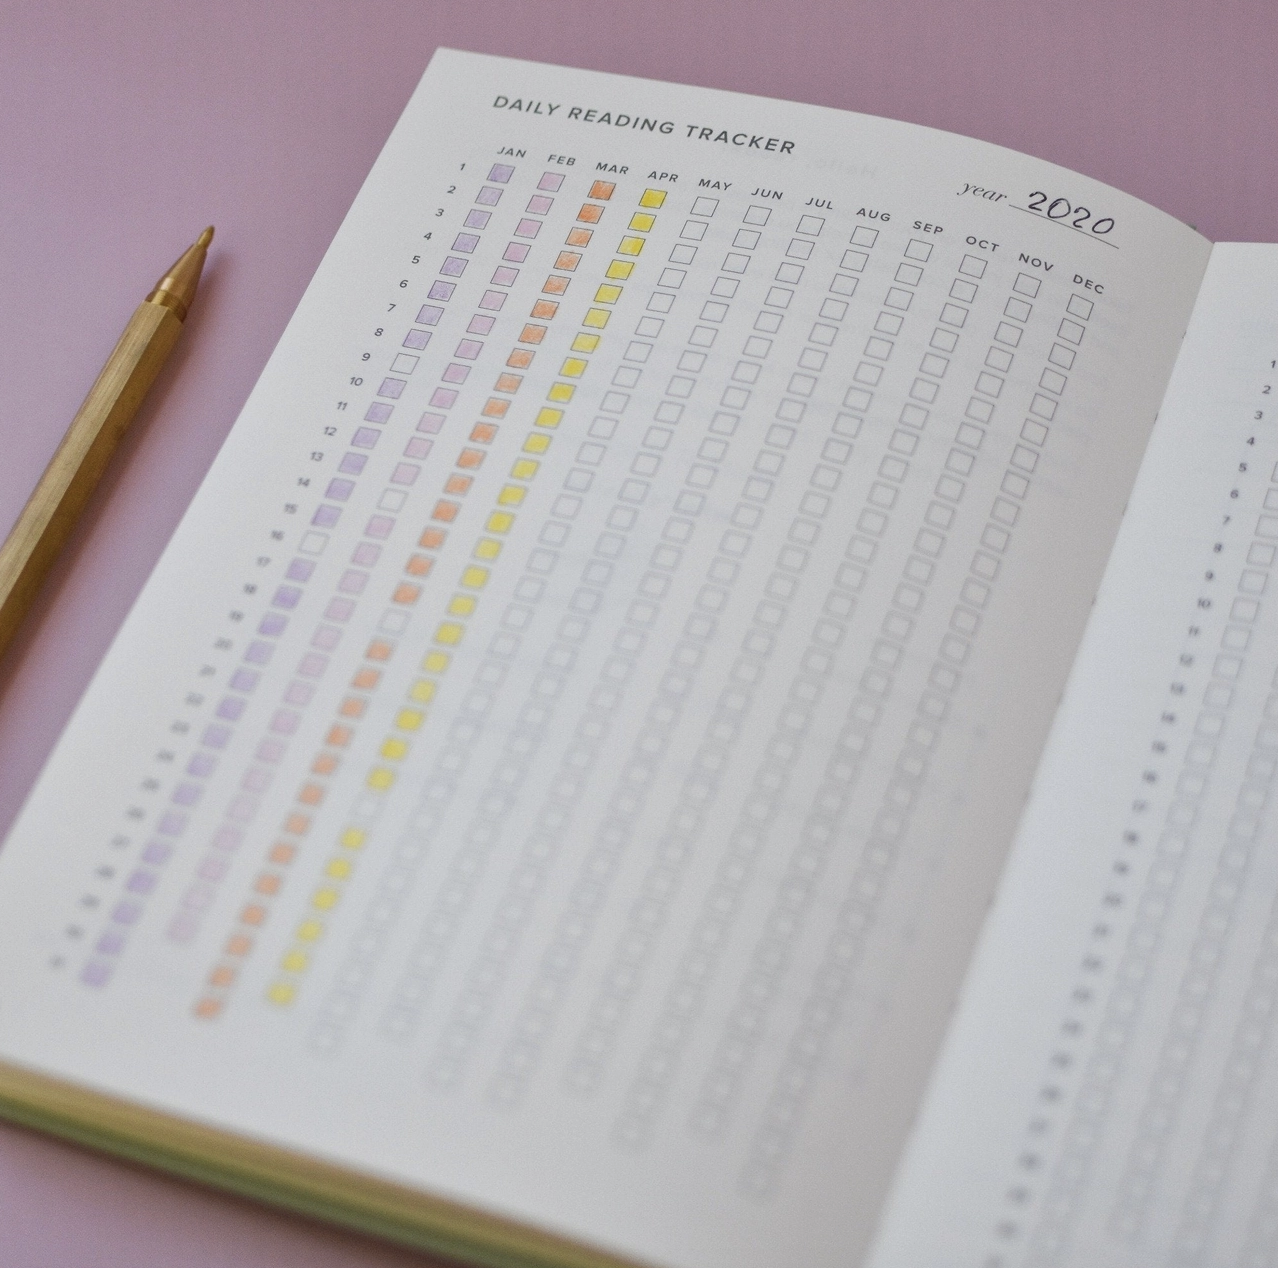 DAILY READING TRACKER
year 2020
JAN FEB MAR APR MAY JUN JUL AUG SEP OCT NOV DEC
1
2
3
4
5
6
7
8
9
10
11
12
13
14
15
16
17
18
19
20
21
1
2
3
4
5
6
7
8
9
10
11
12
13
14
15
16